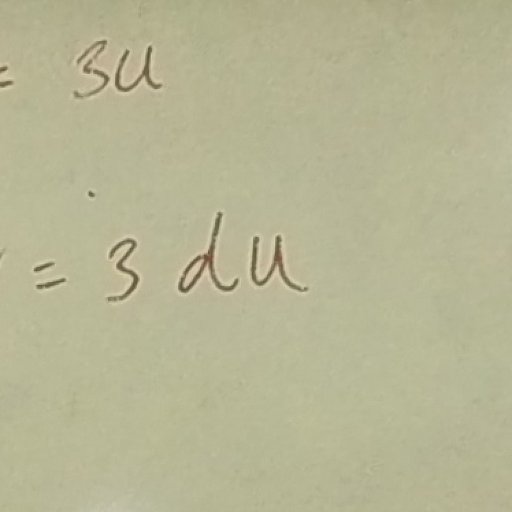 = 3u
= 3 du